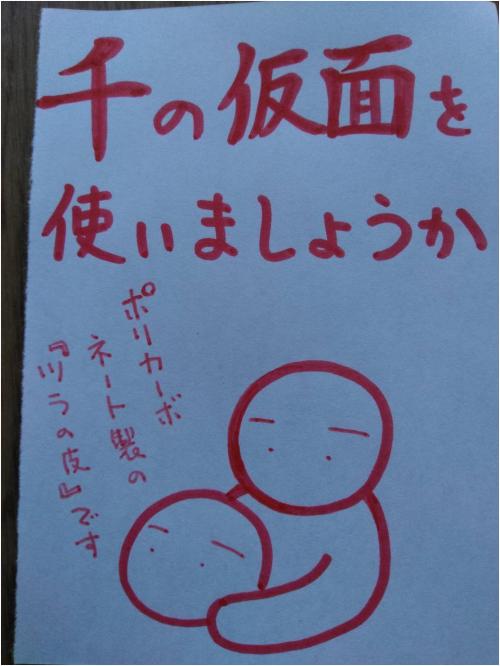 千の仮面を
使いましょうか
ポリカーボ
ネート製の
『ツラの皮』です